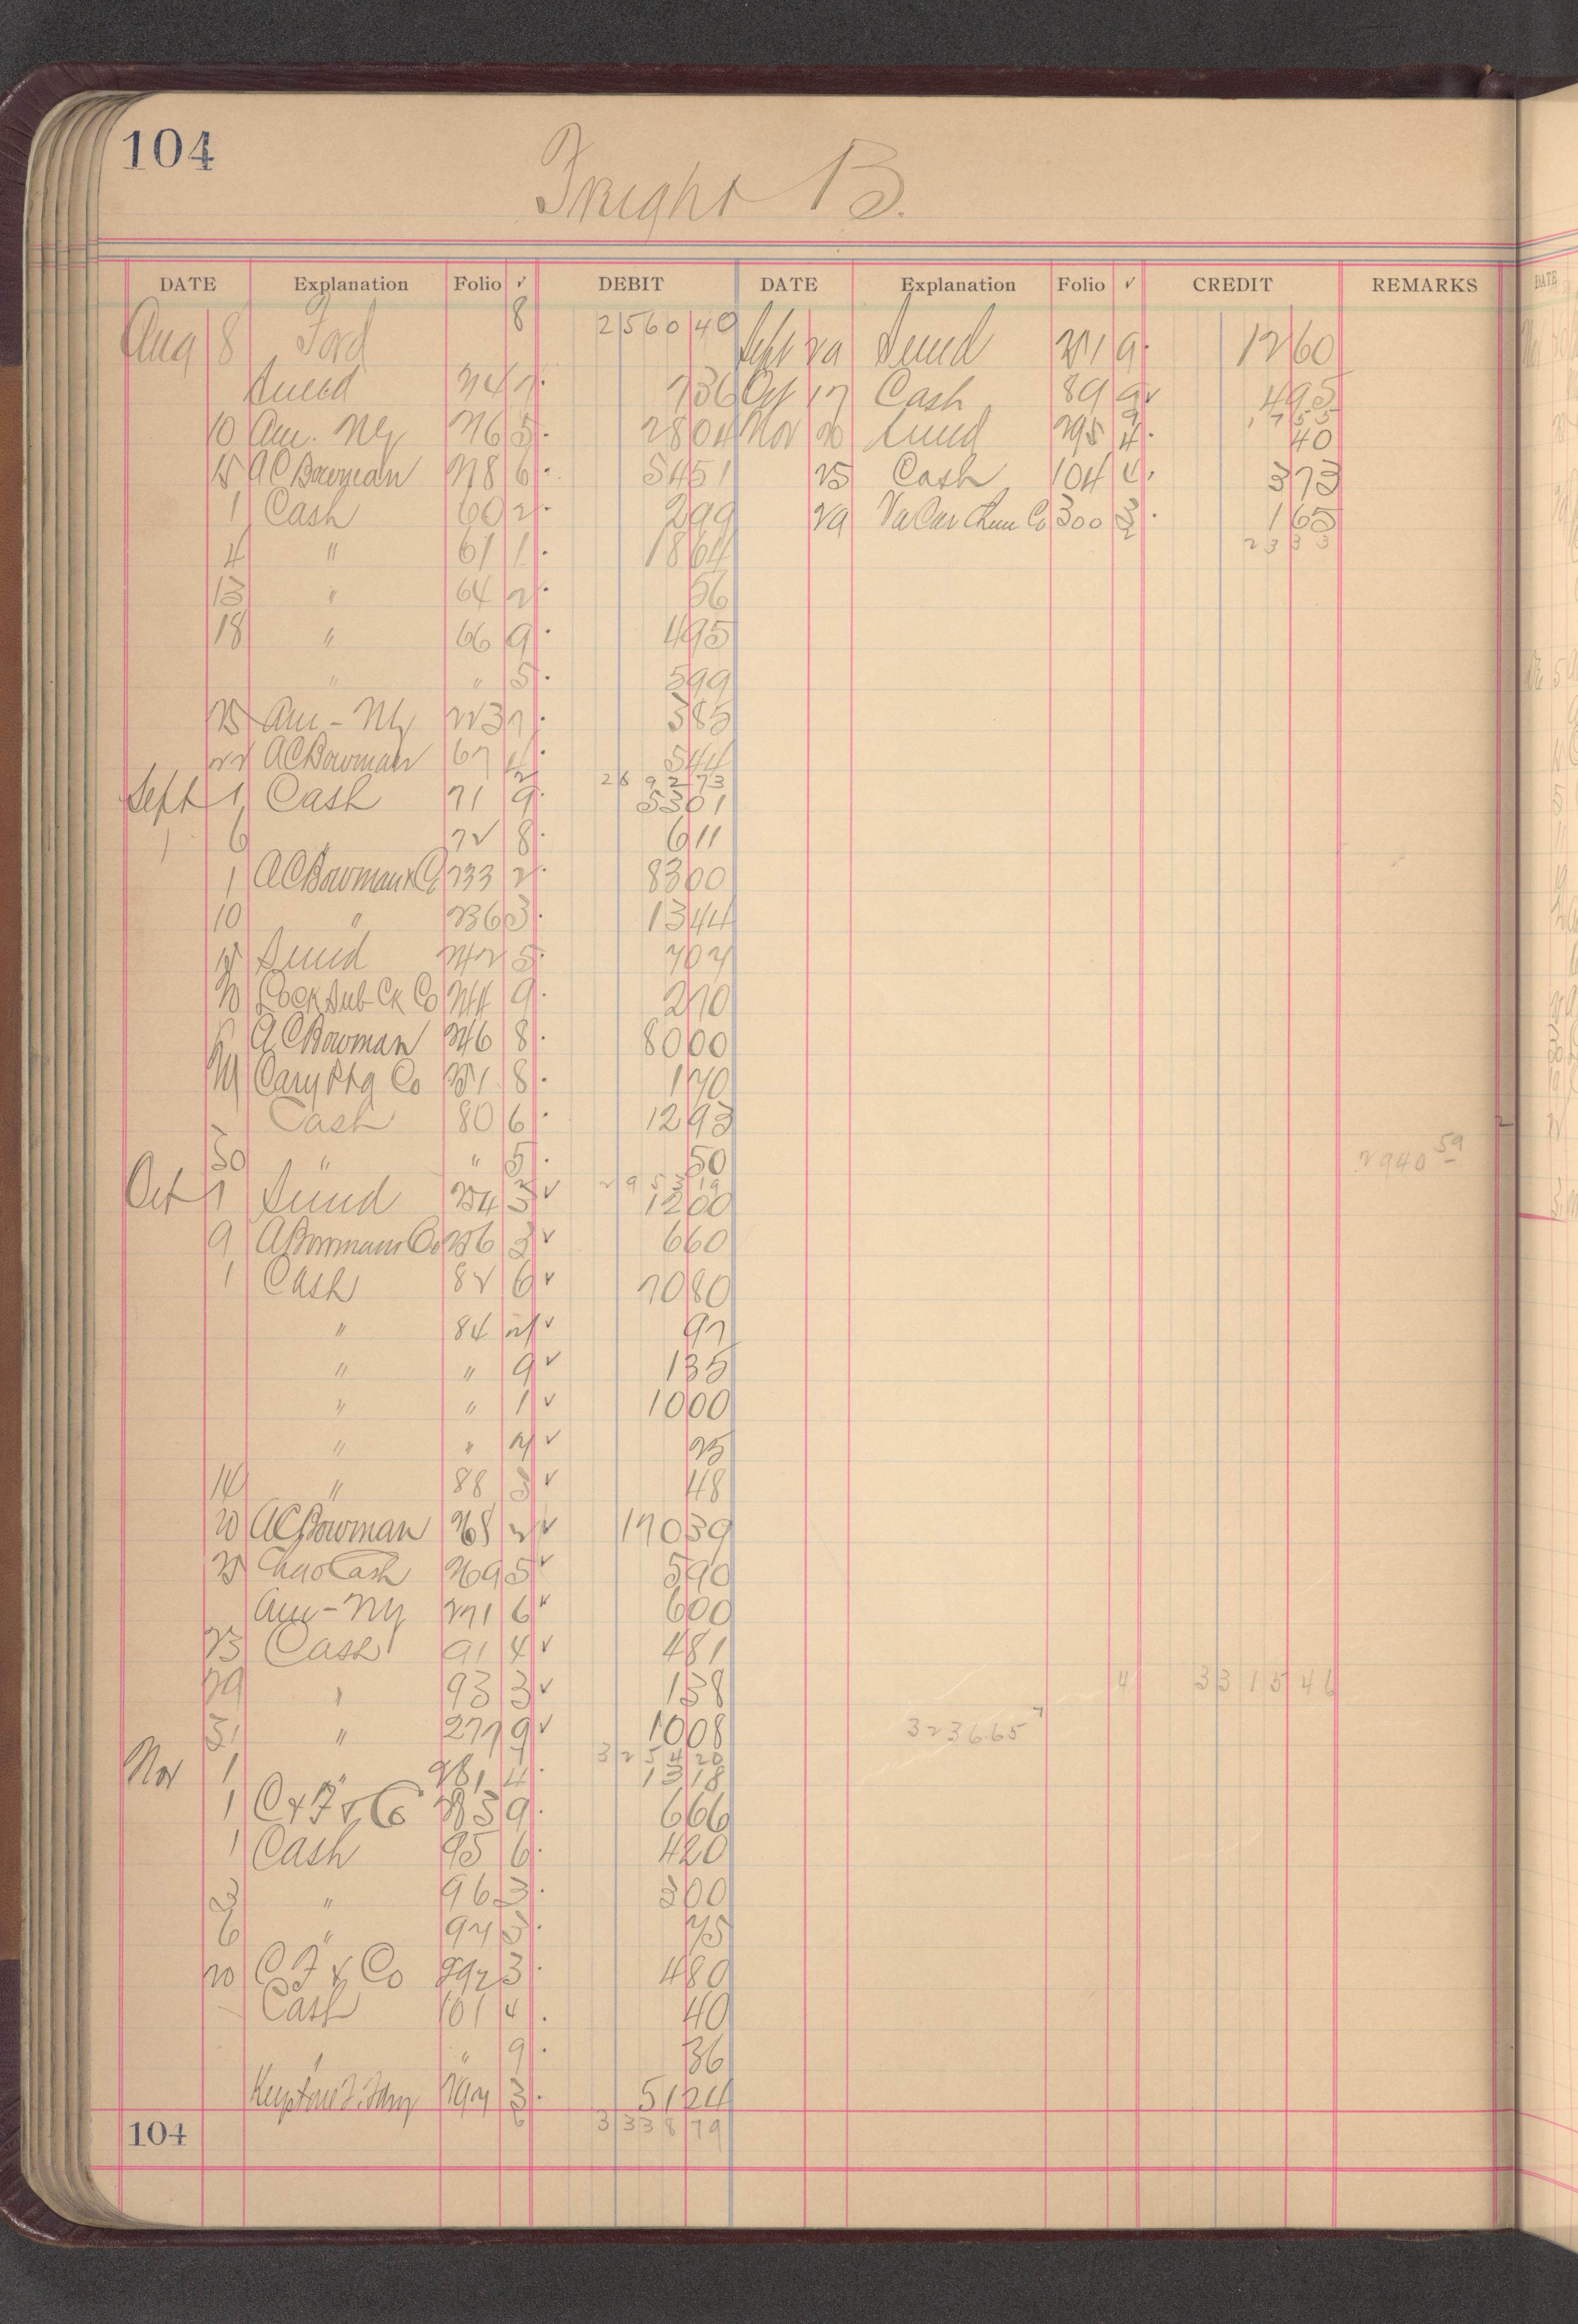 104
Freight B.
DATE Explanation Folio ✓ DEBIT DATE Explanation Folio ✓ CREDIT REMARKS
Aug 8 Ford 8 2560 40 Sept 29 Sund 251 9 12 60
Sund 7 36 Oct 17 Cash 89 9 ✓ 4 95
10 Am. Ny 5 28 04 Nov 20 Sund 295 40
15 A C Bowman 6 54 51 25 Cash 104 4 3 73
1 Cash 60 2 2 99 29 Va Car Chem Co 300 3 1 65
4 " 61 1 18 64 23 33
13 " 64 2 56
18 " 66 9 4 95
" " 5 5 99
25 Am - Ny 3 85
22 A C Bowman 67 4 5 44
2692 73
Sept 1 Cash 71 9 53 01
6 " 72 8 6 11
1 A C Bowman & Co 233 2 83 00
10 " 236 3 13 44
15 Sund 242 5
20 244 9 2 70
A C Bowman 246 8 80 00
Cary Ptg Co 251 8 1 70
Cash 80 6 12 93
30 " " 5 50 2940 59
2953 19
Oct 1 Sund 254 3 ✓ 12 00
9 A Bowman Co 256 3 ✓ 6 60
1 Cash 82 6 ✓ 70 80
" 84 2 ✓ 97
" " 9 ✓ 1 35
" " 1 ✓ 10 00
" " 2 ✓ 25
14 " 88 3 ✓ 48
20 A C Bowman 268 2 ✓ 170 39
25 Cash 269 5 ✓ 5 90
Am - Ny 271 6 ✓ 6 00
23 Cash 91 4 ✓ 4 81
29 " 93 3 ✓ 1 38 4 3315 46
31 " 277 9 ✓ 10 08 3236.65
3254 20
Nov 1 " 281 4 13 18
1 C & F & Co 9 6 66
1 Cash 95 6 4 20
3 " 96 3 3 00
6 " 97 3 75
20 C F & Co 292 3 4 80
Cash 101 4 40
" " 9 36
297 3 51 24
104 3338 79